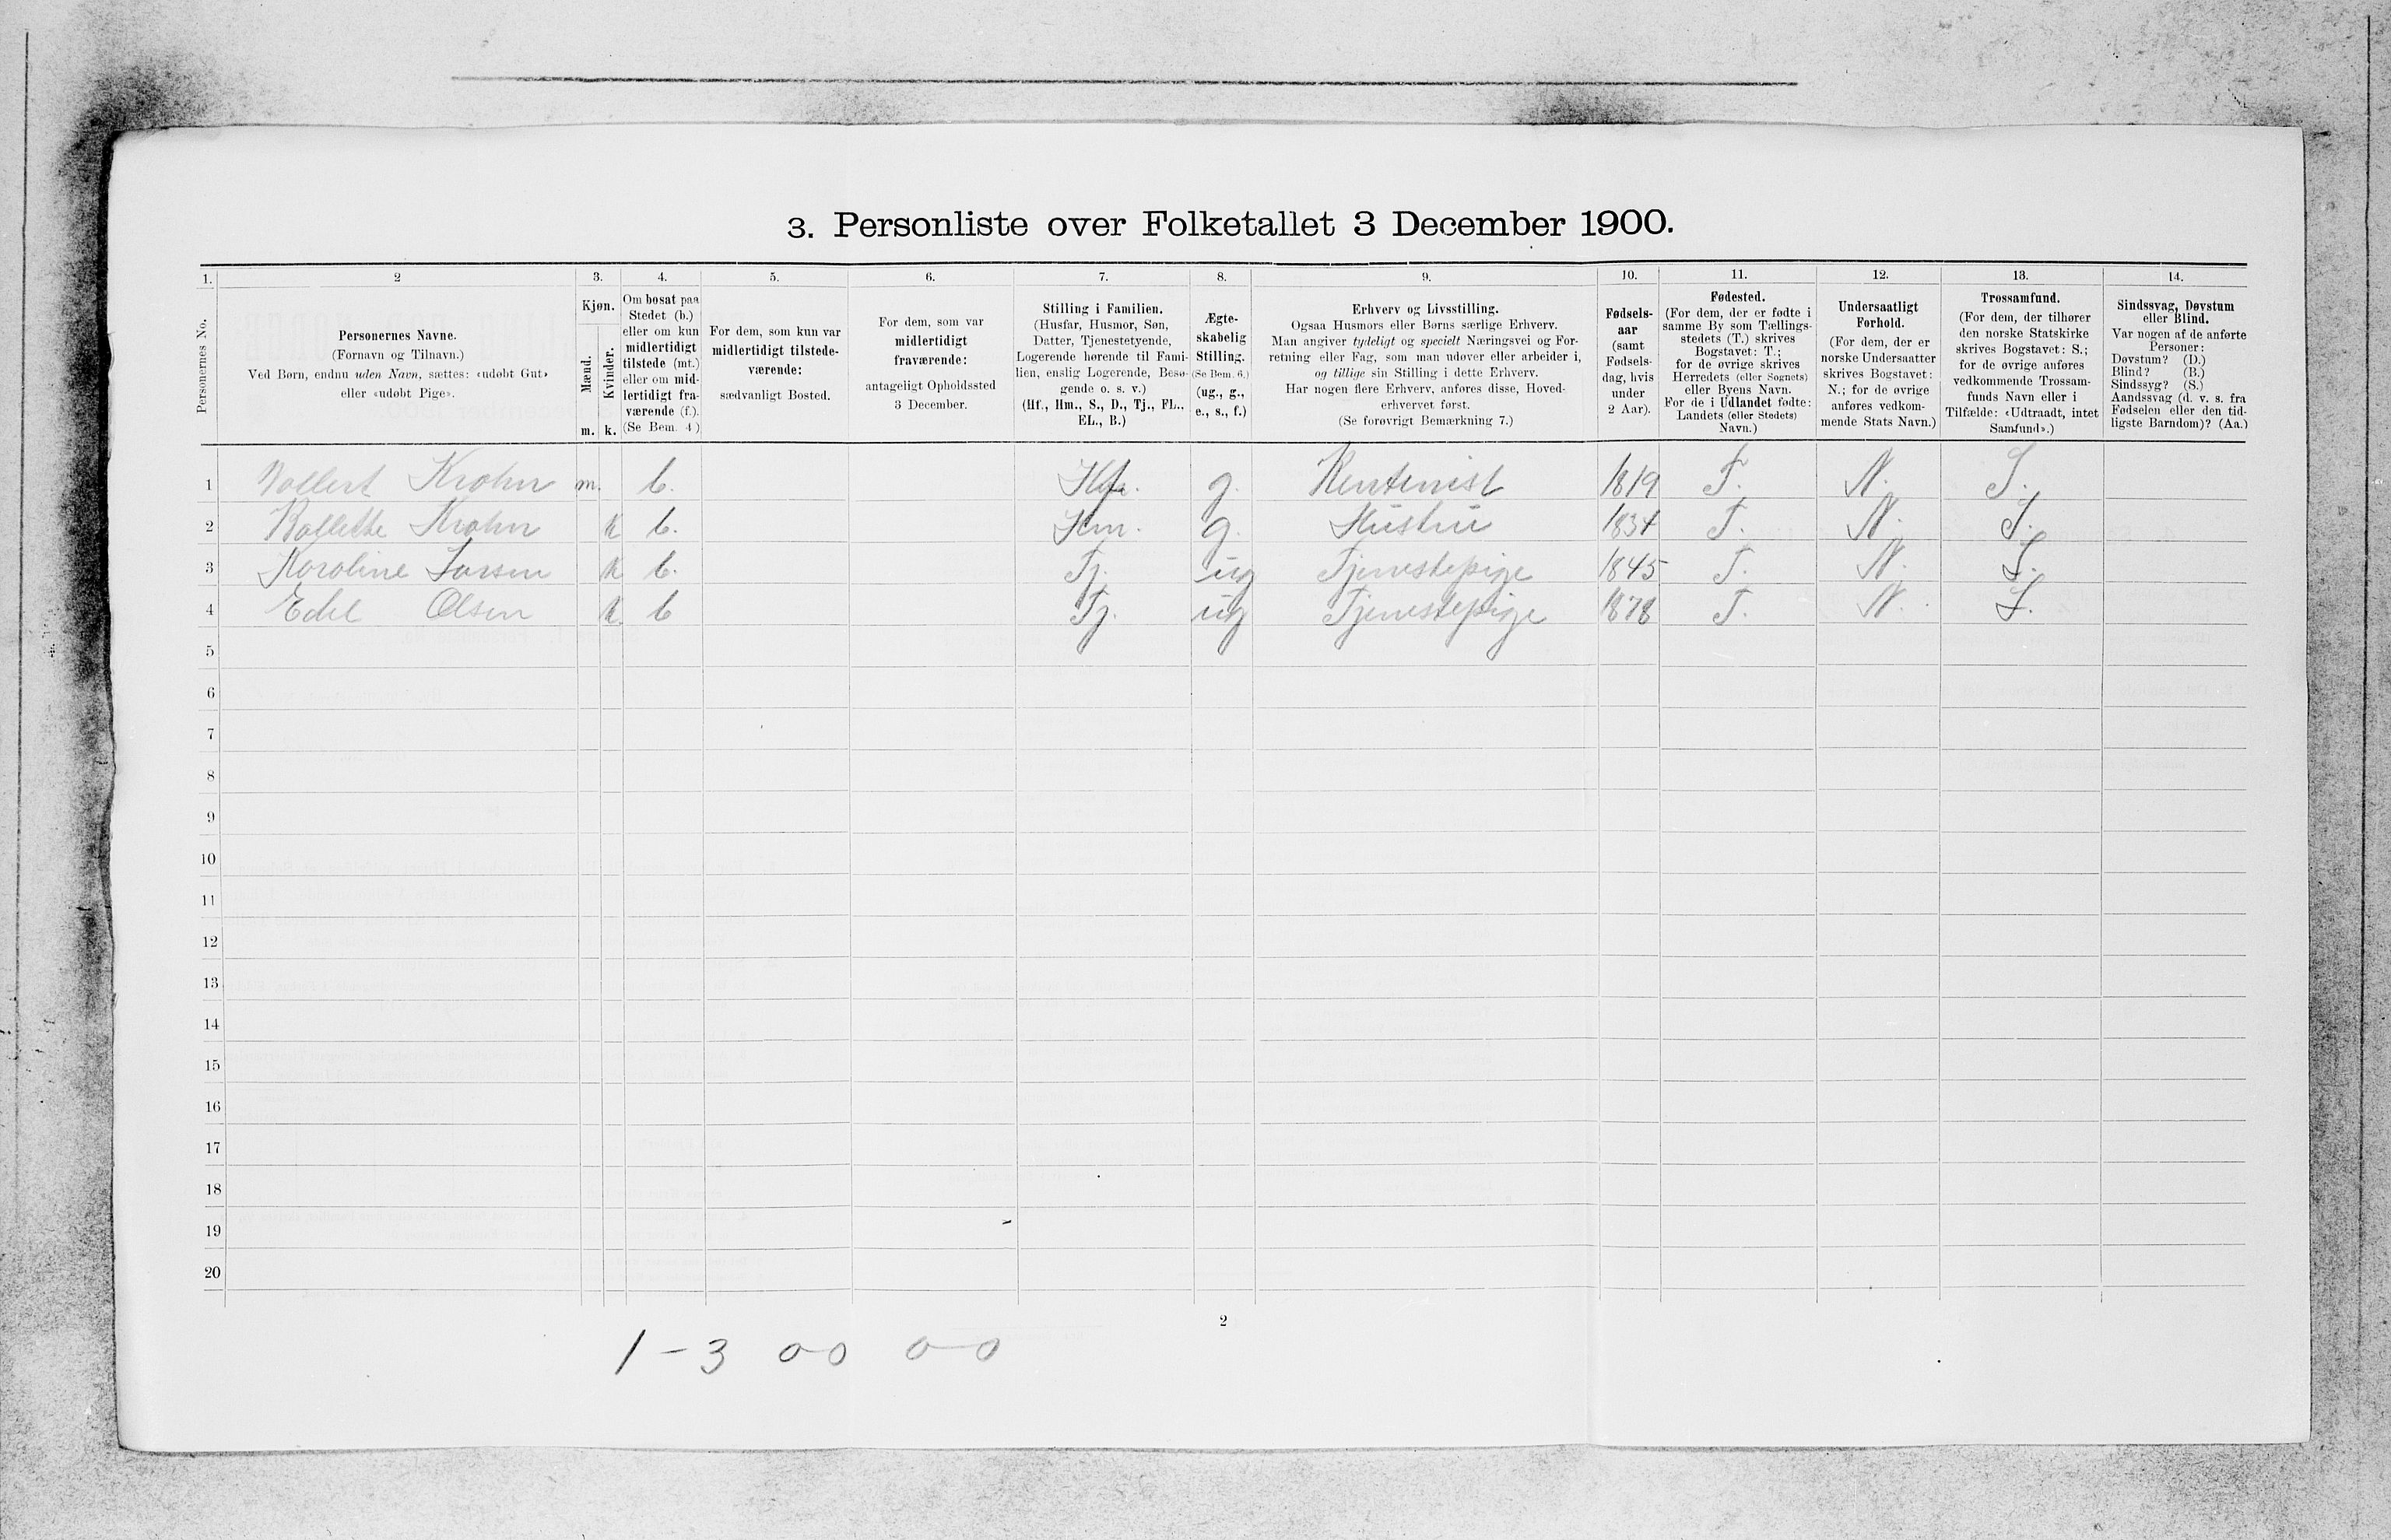 3. Personliste over Folketallet 3 December 1900.
1. 2 3. 4. 5. 6. 7. 8. 9. 10. 11. 12. 13. 14.
Personernes No.
Personernes Navne.
(Fornavn og Tilnavn.)
Ved Børn, endnu uden Navn, sættes: «udøbt Gut»
eller «udøbt Pige».
Kjøn.
Mænd.
Kvinder.
m. k.
Om bosat paa
Stedet (b.)
eller om kun
midlertidigt
tilstede (mt.)
eller om mid-
lertidigt fra-
værende (f.).
(Se Bem. 4.)
For dem, som kun var
midlertidigt tilstede-
værende:
sædvanligt Bosted.
For dem, som var
midlertidigt
fraværende:
antageligt Opholdssted
3 December.
Stilling i Familien.
(Husfar, Husmor, Søn,
Datter, Tjenestetyende,
Logerende hørende til Fami-
lien, enslig Logerende, Besø-
gende o. s. v.)
(Hf., Hm., S., D., Tj., FL.,
EL., B.)
Ægte-
skabelig
Stilling.
(Se Bem. 6.)
(ug., g.,
e., s., f.)
Erhverv og Livsstilling.
Ogsaa Husmors eller Børns særlige Erhverv.
Man angiver tydeligt og specielt Næringsvei og For-
retning eller Fag, som man udøver eller arbeider i,
og tillige sin Stilling i dette Erhverv.
Har nogen flere Erhverv, anføres disse, Hoved-
erhvervet først.
(Se forøvrigt Bemærkning 7.)
Fødsels-
aar
(samt
Fødsels-
dag, hvis
under
2 Aar).
Fødested.
(For dem, der er fødte i
samme By som Tællings-
stedets (T.) skrives
Bogstavet: T.;
for de øvrige skrives
Herredets (eller Sognets)
eller Byens Navn.
For de i Udlandet fødte:
Landets (eller Stedets)
Navn.)
Undersaatligt
Forhold.
(For dem, der er
norske Undersaatter
skrives Bogstavet:
N.; for de øvrige
anføres vedkom-
mende Stats Navn.)
Trossamfund.
(For dem, der tilhører
den norske Statskirke
skrives Bogstavet: S.;
for de øvrige anføres
vedkommende Trossam-
funds Navn eller i
Tilfælde: «Udtraadt, intet
Samfund».)
Sindssvag, Døvstum
eller Blind.
Var nogen af de anførte
Personer:
Døvstum? (D.)
Blind? (B.)
Sindssyg? (S.)
Aandssvag (d. v. s. fra
Fødselen eller den tid-
ligste Barndom)? (Aa.)
1 Vollert Krohn m. b. Hf. g. Rentenist 1819 T. N. S.
2 Krohn k b. Hm. g. Hustru 1834 T. N. S.
3 Karoline Larsen k b. Tj. ug Tjenestepige 1845 T. N. S.
4 Edel Olsen k b Tj. ug Tjenestepige 1878 T. N. S.
5
6
7
8
9
10
11
12
13
14
15
16
17
18
19
20
2
1 - 3 0-0 0-0